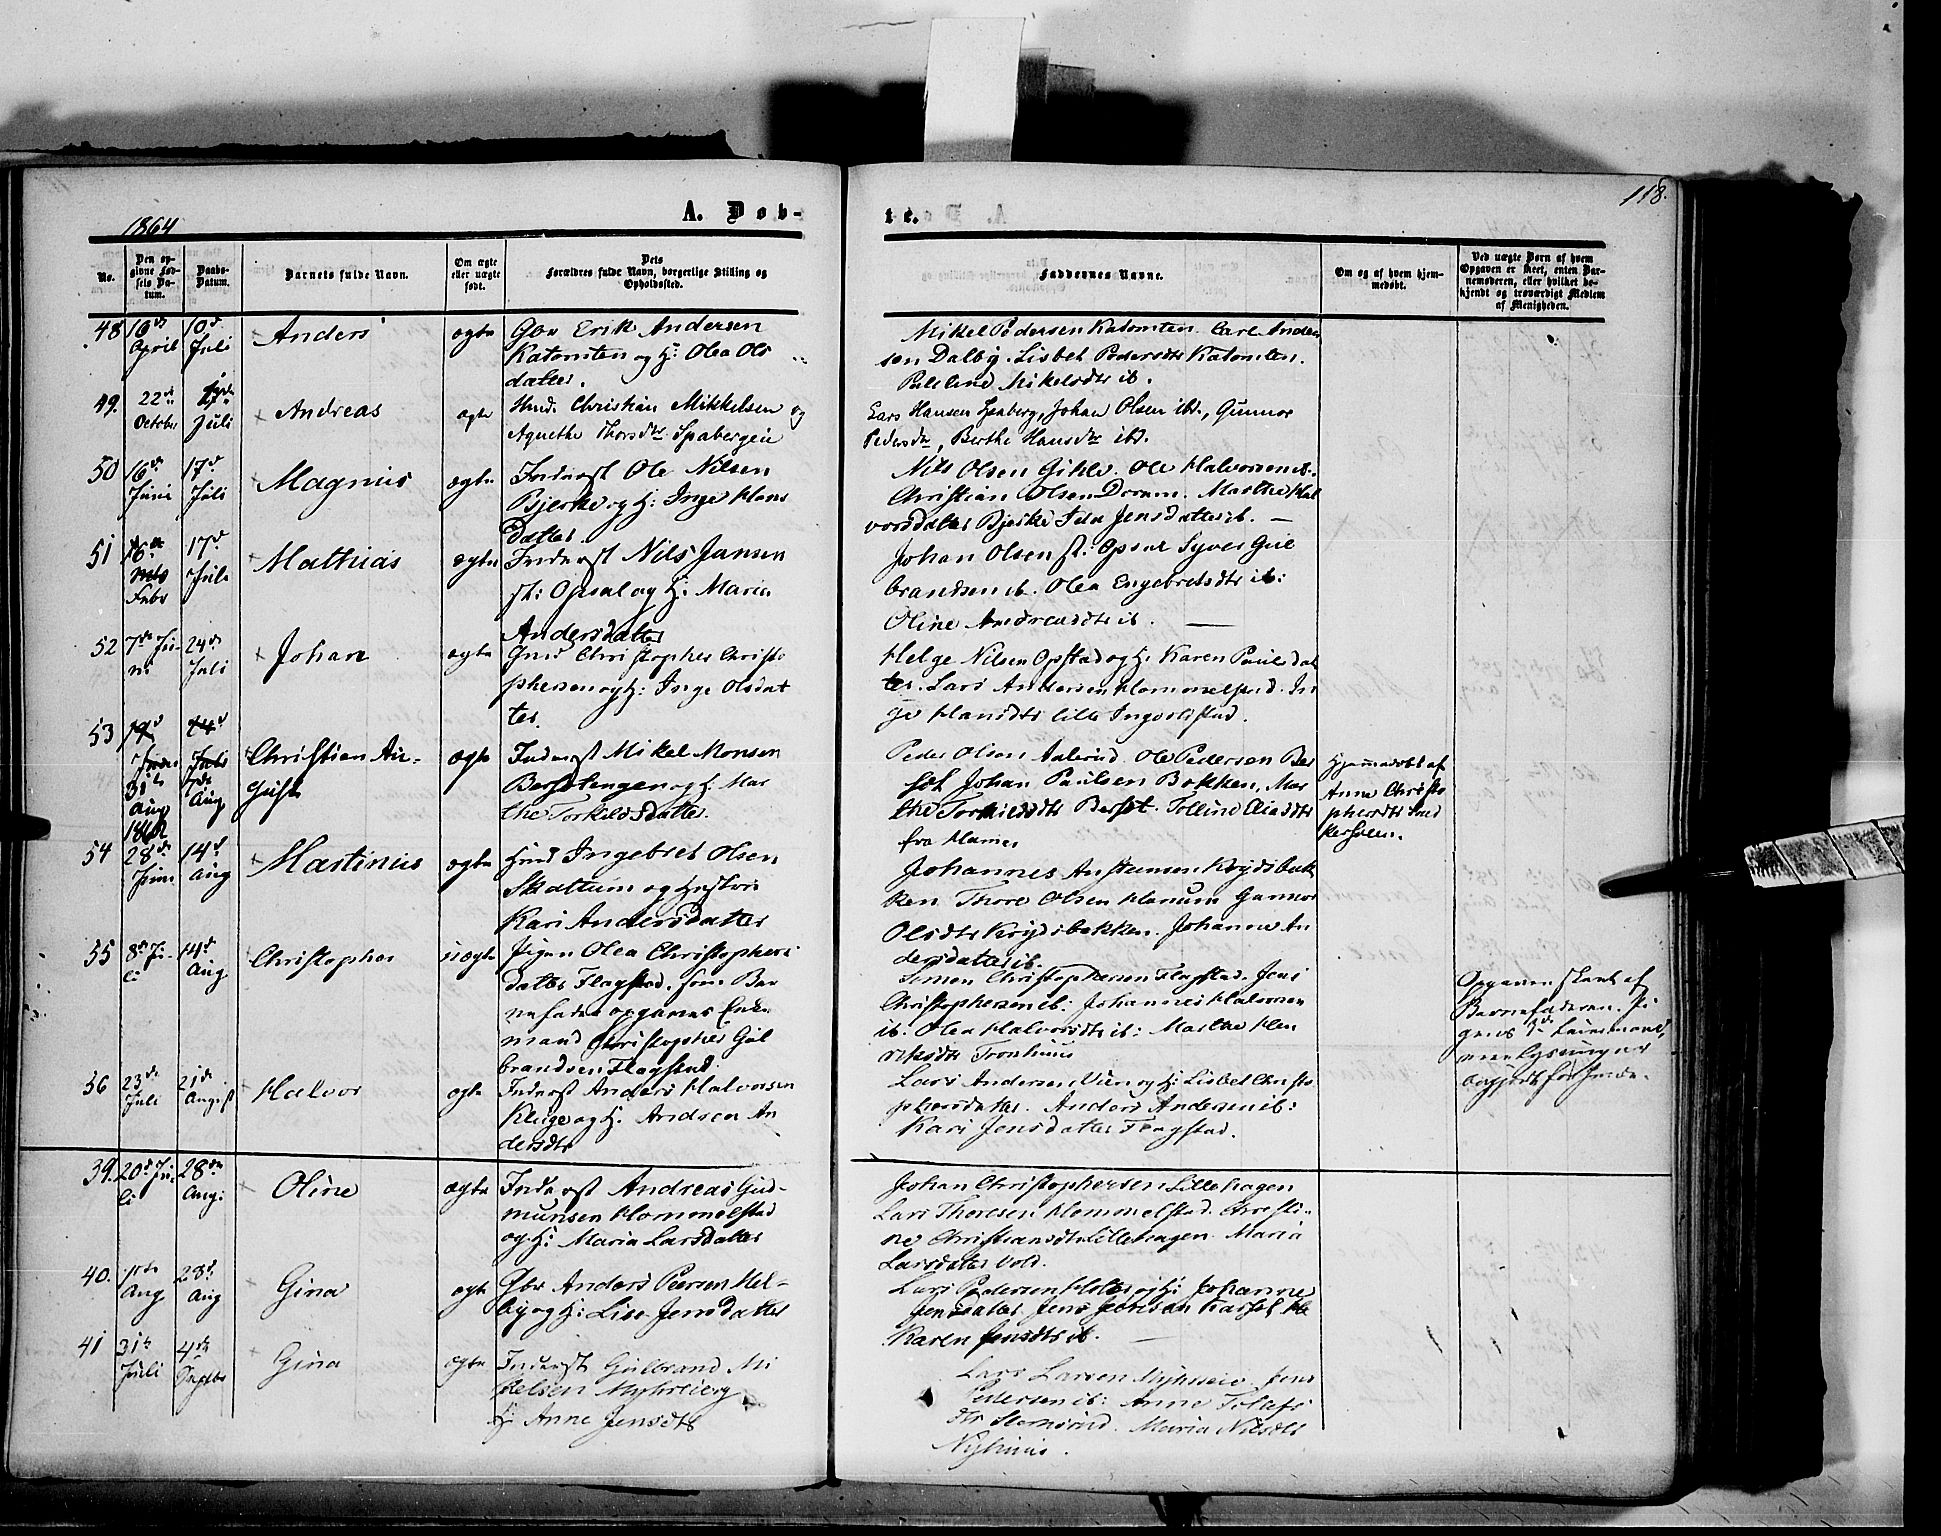 118.
1864
A. Døb-
te.
No.
Den op-
givne Fød-
sels Da-
tum.
Daabs-
Datum.
Barnets fulde Navn.
Om ægte
eller uægte
født.
Dets
Forældres fulde Navn, borgerlige Stilling og
Opholdssted.
Faddernes Navne.
Om og af hvem hjem-
medøbt.
Ved uægte Børn af hvem
Opgaven er skeet, enten Bar-
nemoderen, eller hvilket be-
kjendt og troværdigt Medlem
af Menigheden.
48 16de April 10d Juli Anders ægte
Gbr Erik Andersen
Katomten og H: Olea Ols
datter.
Mikel Pedersen Katomten. Carl Ander
sen Dalby. Lisbet Pedersdtr Katomten.
Mikelsdtr ib.
49. 22de October Juli Andreas ægte
Husd. Christian Mikkelsen og
Agnethe Thorsdtr Spabergeie
Lars Hansen Spaberg, Johan Olsen ibd., Gunnor
Pedersdtr, Berthe Hansdtr ibd.
50 16de Juni 17d Juli Magnus ægte
Inderst Ole Nilsen
Bjerke og H: Inge Hans
Datter.
Nils Olsen Gihle. Ole Halvorsen ib.
Christian Olsen Marthe Hal
vorsdatter Bjerke Jensdatter ib. —
51 16de Febr 17d Juli Mathias ægte
Inderst Nils Jansen
st: Opsal og H. Maria
Andersdatter
Johan Olsen st: Opsal Syver Gul
brandsen ib. Olea Engebretsdtr ib:
Oline Andreasdtr ib. —
52 7de Ju-
ni 24de Juli Johan ægte
Inds Christopher Christo
phersen og H: Inge Olsdat
ter.
Helge Nilsen Opstad og H. Karen Paulsdat
ter. Lars Andersen Hommelstad. In
ge Hansdtr lille Ingvoldstad.
53 31te Aug 1862 7de Aug Christian Au-
gust ægte
Inderst Mikel Monsen
Bersetengen og H. Mar
the Torkelsdatter.
Peder Olsen Aalerud. Ole Pedersen Ber
set Johan Paulsen Bakken, Mar
the Berset. Eliasdtr
fra Hamar
Hjemmedøbt af
Anne Christo
phersdtr
54 28de Juni 14d Aug Martinus ægte
Husd Ingebret Olsen
Skattum og Hustru
Kari Andersdatter
Johannes Anstensen Krydsbak
ken Thore Olsen Hanum Gunnor
Olsdtr Krydsbakken. Johanne An
dersdatter ib.
55 8de Ju-
li 14d Aug Christopher uægte
Pigen Olea Christophers
datter Flagstad, som Bar
nefader opgaves Enke
mand Christopher Gul
brandsen Flagstad.
Simen Christophersen Flagstad. Jens
Christophersen ib: Johannes Halvorsen
ib. Olea Halvorsdtr ib: Marthe Hen
riksdtr Tronhuus
Opgaven skeet af
Barnefaderen. Pi
gens 3de Leiermaal,
56 23de Juli 21de August Halvor ægte
Inderst Anders Halvorsen
Kluge og H. Andrea An
dersdtr
Lars Andersen Vien og H: Lisbet Christo
phersdatter. Anders Andersen ib:
Kari Jensdatter Flagstad.
39. 20d Ju-
li 28de Aug: Oline ægte
Inderst Andreas Gud-
munsen Hommelstad
og H: Maria Larsdatter
Johan Christophersen Lillehagen
Lars Thoresen Hommelstad. Christi-
ne Christiansdtr Lillehagen. Maria
Larsdatter Vold.
40. Aug 28d Aug Gina ægte
Gbr Anders Peersen Mel-
by og H: Lise Jensdatter
Lars Pedersen Holter og H: Johanne
Jensdatter. Jens Jensen
Karen Jensdtr ib. —
41 31te Juli 4de Septbr Gina ægte
Inderst Gulbrand Mi
kelsen Myhreieog
H: Anne Jensdtr
Lars Larsen Jens
Pedersen ib: Anne
dtr Maria Nilsdtr
Nyhuus.